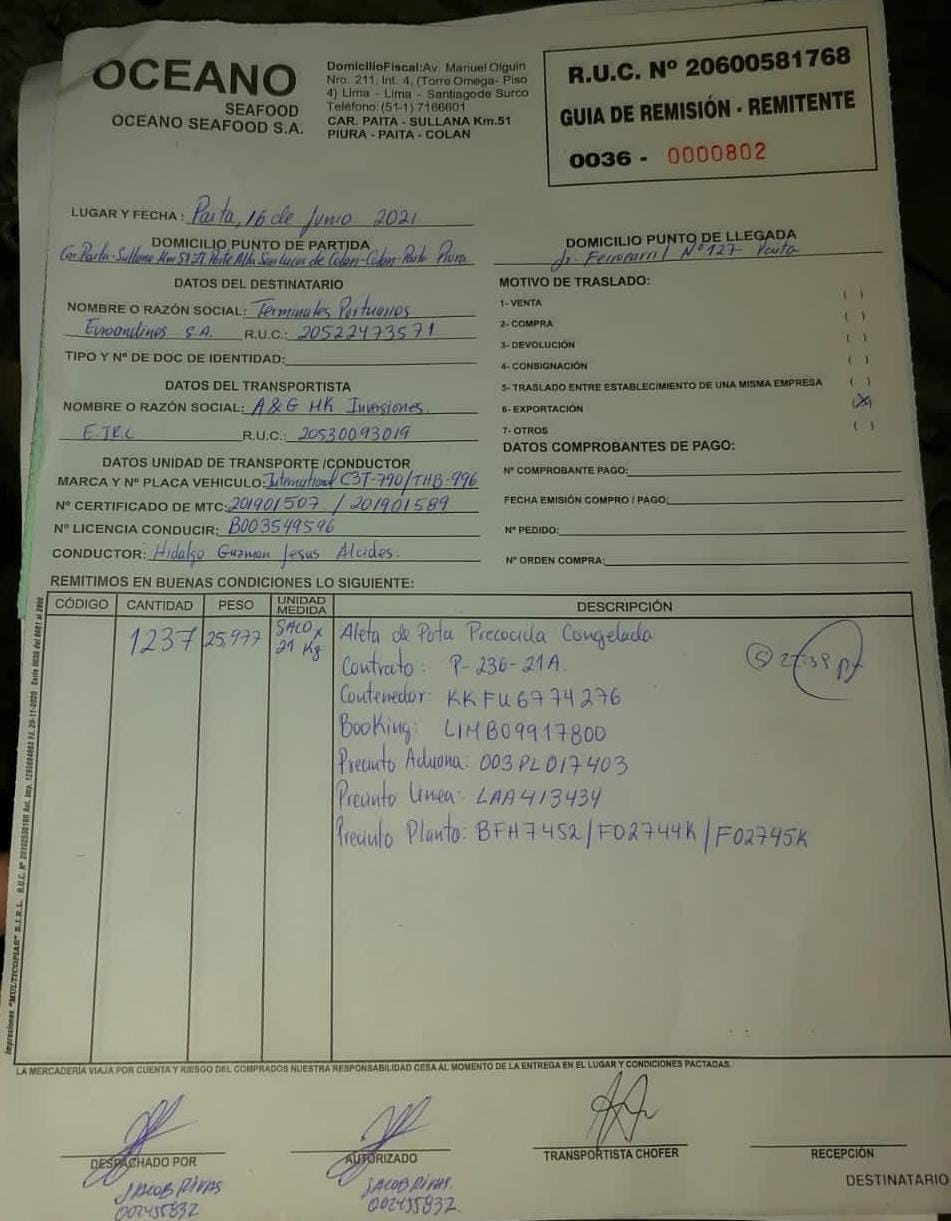 OCEANO
SEAFOOD
OCEANO SEAFOOD S.A.
DomicilioFiscal:Av. Manuel Olguin
Nro. 211, Int. 4, (Torre Omega- Piso
4) Lima - Lima - Santiagode Surco
Teléfono:(51-1) 7166601
CAR. PAITA - SULLANA Km.51
PIURA - PAITA - COLAN
R.U.C. Nº 20600581768
GUIA DE REMISIÓN - REMITENTE
0036 - 0000802
LUGAR Y FECHA: Paita, 16 de Junio 2021
DOMICILIO PUNTO DE PARTIDA
Car. Paita-Sullana Km Parte Alta San Lucas de Colan-Colan-Paita Piura
DOMICILIO PUNTO DE LLEGADA
Jr. Ferrocarril Nº 127 Paita
DATOS DEL DESTINATARIO
NOMBRE O RAZÓN SOCIAL: Terminales Portuarios
Euroandinos S.A. R.U.C.: 20522473571
TIPO Y Nº DE DOC DE IDENTIDAD:
DATOS DEL TRANSPORTISTA
NOMBRE O RAZÓN SOCIAL: A&G HK Inversiones
E.I.R.L R.U.C.: 20530093019
DATOS UNIDAD DE TRANSPORTE /CONDUCTOR
MARCA Y Nº PLACA VEHICULO: International C3T-790/THB-996
Nº CERTIFICADO DE MTC: 201901507 / 201901589
Nº LICENCIA CONDUCIR: B003549596
CONDUCTOR: Hidalgo Guzman Jesus Alcides.
MOTIVO DE TRASLADO:
1- VENTA ( )
2- COMPRA ( )
3- DEVOLUCIÓN ( )
4- CONSIGNACIÓN ( )
5- TRASLADO ENTRE ESTABLECIMIENTO DE UNA MISMA EMPRESA ( )
6- EXPORTACIÓN (X)
7- OTROS ( )
DATOS COMPROBANTES DE PAGO:
Nº COMPROBANTE PAGO:
FECHA EMISIÓN COMPRO / PAGO:
Nº PEDIDO:
Nº ORDEN COMPRA:
REMITIMOS EN BUENAS CONDICIONES LO SIGUIENTE:
CÓDIGO CANTIDAD PESO UNIDAD MEDIDA DESCRIPCIÓN
1237 25,977 SACO x 21 Kg Aleta de Pota Precocida Congelada
Contrato: P-236-21A.
Contenedor: KKFU6774276
Booking: LIMB09917800
Precinto Aduana: 003PL017403
Precinto Linea: LAA413434
Precinto Planta: BFH7452/F02744K/F02745K
Impresiones "MULTICOPIAS" S.I.R.L.
LA MERCADERÍA VIAJA POR CUENTA Y RIESGO DEL COMPRADOS NUESTRA RESPONSABILIDAD CESA AL MOMENTO DE LA ENTREGA EN EL LUGAR Y CONDICIONES PACTADAS.
DESPACHADO POR
JACOB RIVAS
002455832
AUTORIZADO
JACOB RIVAS
002455832.
TRANSPORTISTA CHOFER
RECEPCIÓN
DESTINATARIO